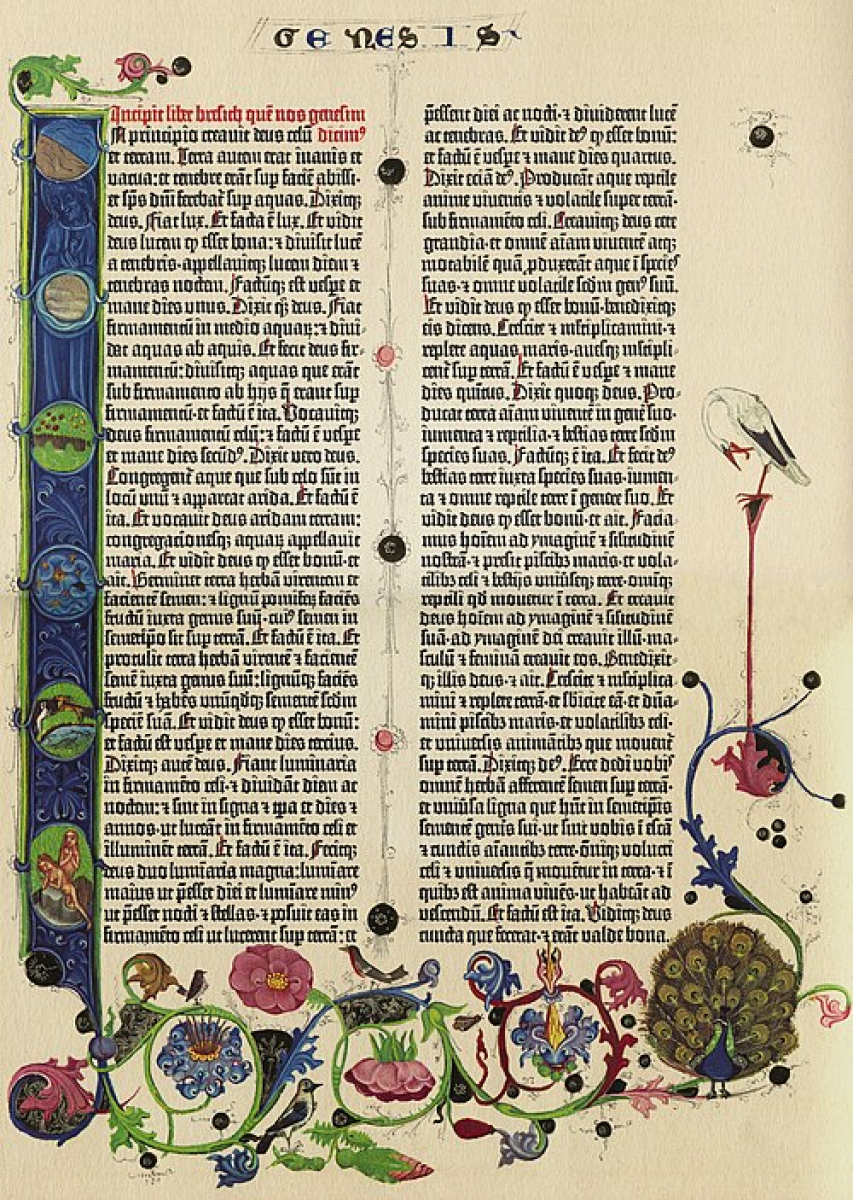 GENESIS
Incipit liber bresich quē nos genesim
In principio creauit deus celū dicim⁹
et terram. Terra autem erat inanis et
vacua: et tenebre erāt sup faciē abissi:
et sp̄s dn̄i ferebat̄ sup aquas. Dixitqꝫ
deus. Fiat lux. Et facta ē lux. Et vidit
deus lucem ꝙ esset bona: ⁊ diuisit lucē
a tenebris· appellauitqꝫ lucem diem ⁊
tenebras noctem. Factūqꝫ est vespe et
mane dies vnus. Dixit qꝫ deus. Fiat
firmamentū in medio aquaꝝ: ⁊ diui-
dat aquas ab aquis. Et fecit deus fir-
mamentū: diuisitqꝫ aquas que erāt
sub firmamento ab hijs q̄ erant sup
firmamentū: et factū ē ita. Vocauitqꝫ
deus firmamentū celū: ⁊ factū ē vespe
et mane dies secūd⁹. Dixit vero deus.
Congregent̄ aque que sub celo sūt in
locū vnū ⁊ appareat arida. Et factū ē
ita. Et vocauit deus aridam terram:
congregacionesqꝫ aquaꝝ appellauit
maria. Et vidit deus ꝙ esset bonū· et
ait. Germinet terra herbā virentem et
facientē semen: ⁊ lignū pomiferꝫ faciēs
fructū iuxta genus suū· cui⁹ semen in
semetip̄o sit sup terrā. Et factū ē ita. Et
protulit terra herbā virentē ⁊ facientē
semē iuxta genus suū: lignūqꝫ faciēs
fructū ⁊ habēs vnūqdqꝫ sementē scdm
speciē suā. Et vidit deus ꝙ esset bonū:
et factū est vespe et mane dies tercius.
Dixitqꝫ autē deus. Fiant luminaria
in firmamēto celi· ⁊ diuidāt diem ac
noctem: ⁊ sint in signa ⁊ tp̄a et dies ⁊
annos· ut luceāt in firmamēto celi et
illuminēt terrā. Et factū ē ita. Fecitqꝫ
deus duo luminaria magna: lumīare
maius ut p̄esset diei et lumīare min⁹
ut p̄esset nocti ⁊ stellas· ⁊ posuit eas in
firmamēto celi ut lucerent sup terrā: et
p̄essent diei ac nocti· ⁊ diuiderent lucē
ac tenebras. Et vidit de⁹ ꝙ esset bonū:
et factū ē vespe ⁊ mane dies quartus.
Dixit eciā de⁹. Producāt aque reptile
anime viuentis ⁊ volatile super terrā·
sub firmamēto celi. Creauitqꝫ deus cete
grandia· et omnē aīam viuentē atqꝫ
motabilē quā ꝓduxerāt aque ī species
suas· ⁊ omne volatile scdm gen⁹ suū.
Et vidit deus ꝙ esset bonū· benedixitqꝫ
eis dicens. Crescite ⁊ ml̄tiplicamini· ⁊
replete aquas maris· auesqꝫ ml̄tipli-
cent̄ sup terrā. Et factū ē vespe ⁊ mane
dies quītus. Dixit quoqꝫ deus. Pro-
ducat terra aīam viuentē in genē suo·
iumenta ⁊ reptilia· ⁊ bestias terre scdm
species suas. Factūqꝫ ē ita. Et fecit de⁹
bestias terre iuxta species suas· iumen-
ta ⁊ omne reptile terre ī genere suo. Et
vidit deus ꝙ esset bonū· et ait. Facia-
mus hoīem ad ymaginē ⁊ sil̄itudinē
nostrā· ⁊ presit piscibꝫ maris· et vola-
tilibꝫ celi ⁊ bestijs vniūseqꝫ terre· omīqꝫ
reptili qd mouetur ī terra. Et creauit
deus hoīem ad ymaginē ⁊ sil̄itudinē
suā· ad ymaginē dei creauit illū· ma-
sculū ⁊ feminā creauit eos. Benedixit-
qꝫ illis deus· ⁊ ait. Crescite ⁊ ml̄tiplica-
mini ⁊ replete terrā· et sb̄icite eā· et dn̄a-
mini piscibꝫ maris· et volatilibꝫ celi·
et vniuersis animātibꝫ que mouent̄
sup terrā. Dixitqꝫ de⁹. Ecce dedi vobis
omnē herbā afferentē semen sup terrā·
et vniūsa ligna que hn̄t in semetip̄is
sementē genis sui· ut sint vobis ī escā
⁊ cunctis aīantibꝫ terre· ōniqꝫ volucri
celi ⁊ vniuersis q̄ mouētur in terra· ⁊ ī
quibꝫ est anima viuēs· ut habeāt ad
vescendū. Et factū est ita. Viditqꝫ deus
cuncta que fecerat· ⁊ erāt valde bona.